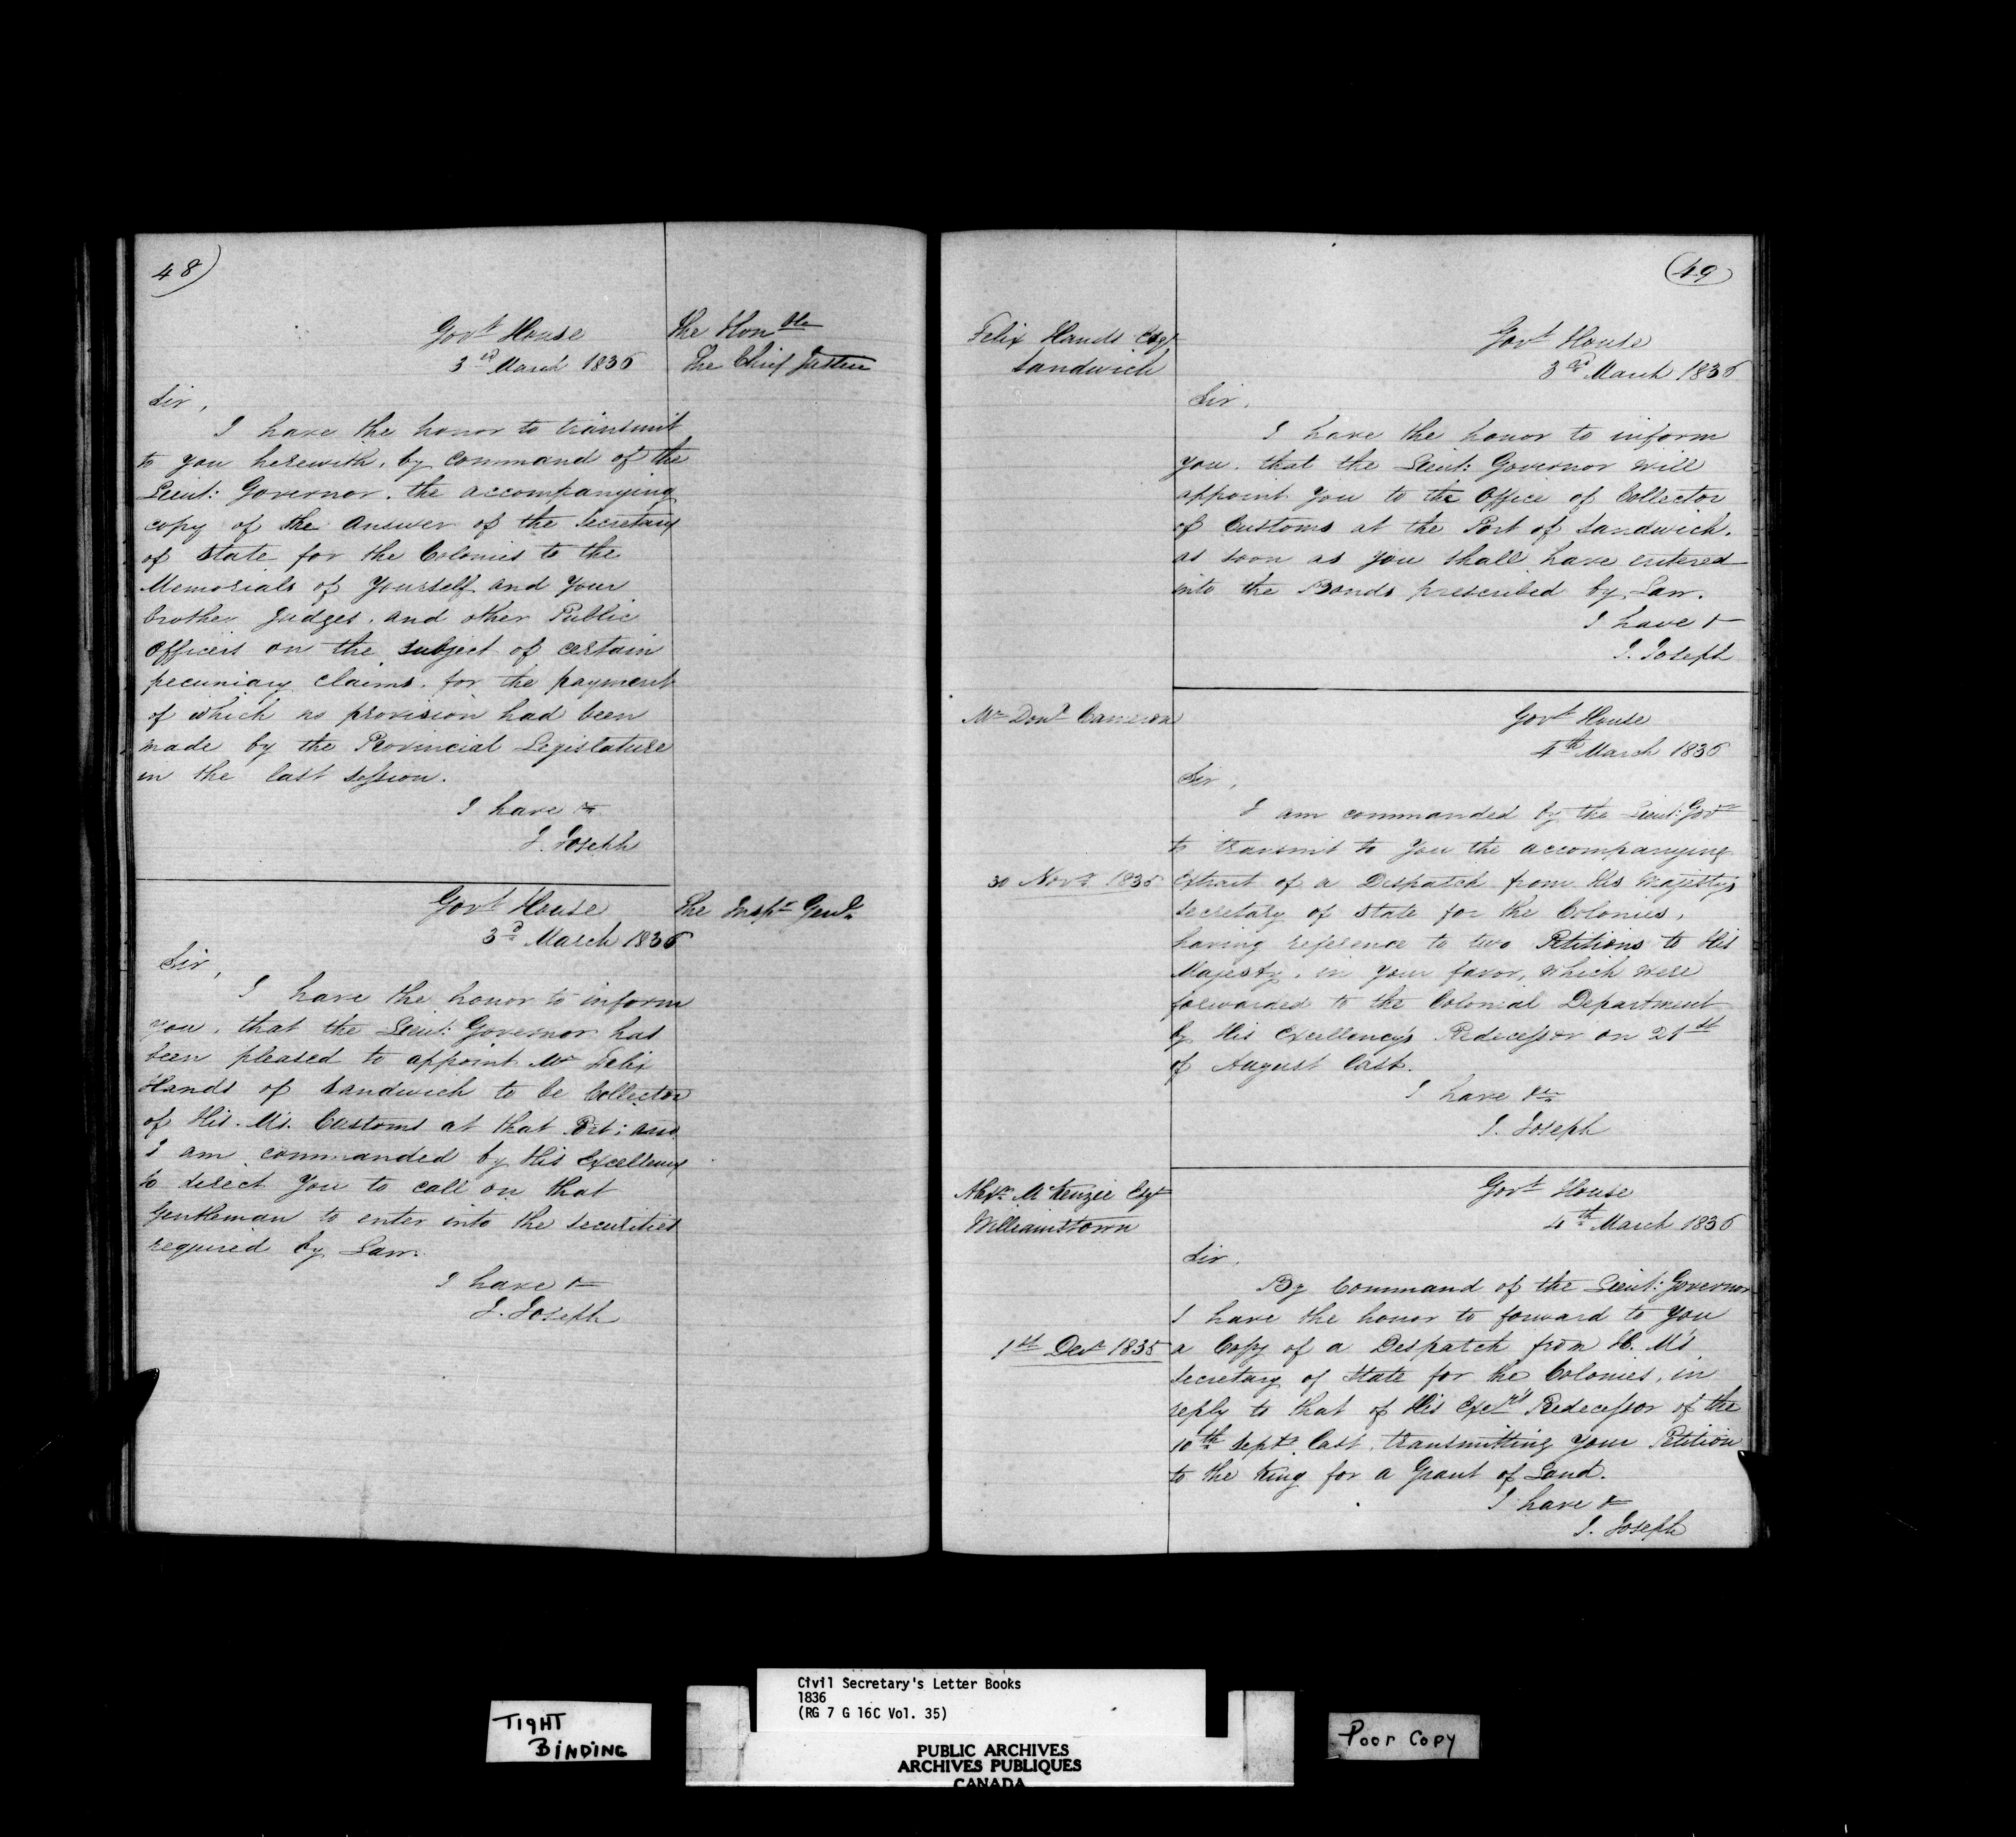 48)
Govt House
3rd March 1836
The Honble
The Chief Justice
Sir,
I have the honor to transmit
to you herewith, by command of the
Lieut: Governor, the accompanying
copy of the Answer of the Secretary
of State for the Colonies to the
Memorials of Yourself and Your
brother Judges, and other Public
Officers on the subject of certain
pecuniary Claims, for the payment
of which no provision had been
made by the Provincial Legislature
in the last Session.
I have &c
J. Joseph
Govt House
3d March 1836
The Inspr Genl.
Sir,
I have the honor to inform
you, that the Lieut: Governor has
been pleased to appoint Mr Felix
Hands of Sandwich to be Collector
of His M's. Customs at that Port; and
I am commanded by His Excellency
to direct You to call on that
Gentleman to enter into the securities
required by Law.
I have &
J. Joseph
(49)
Felix Hands Esqr
Sandwich
Govt House
3rd March 1836
Sir,
I have the honor to inform
you, that the Lieut: Governor will
appoint You to the Office of Collector
of Customs at the Port of Sandwich,
as soon as you shall have entered
into the Bonds prescribed by Law.
I have &
J. Joseph
Mr Dond Cameron
Govt House
4th March 1836
Sir,
I am commanded by the Lieut: Govr
to transmit to You the accompanying
30 Novr 1835
Extract of a Despatch from His Majesty's
Secretary of State for the Colonies,
having reference to two Petitions to His
Majesty, in Your favor, which were
forwarded to the Colonial Department
by His Excellency's Predecessor on 21st
of August last.
I have &c
J. Joseph
Alexr McKenzie Esqr
Williamstown
Govt House
4th March 1836
Sir,
By Command of the Lieut: Governor
I have the honor to forward to You
1st Decr 1835
a Copy of a Despatch from H. M's
Secretary of State for the Colonies, in
reply to that of His Excy's Predecessor of the
10th Septr last, transmitting Your Petition
to the King for a Grant of Land.
I have &
J. Joseph
TIGHT
BINDING
Civil Secretary's Letter Books
1836
(RG 7 G 16C Vol. 35)
PUBLIC ARCHIVES
ARCHIVES PUBLIQUES
CANADA
Poor Copy